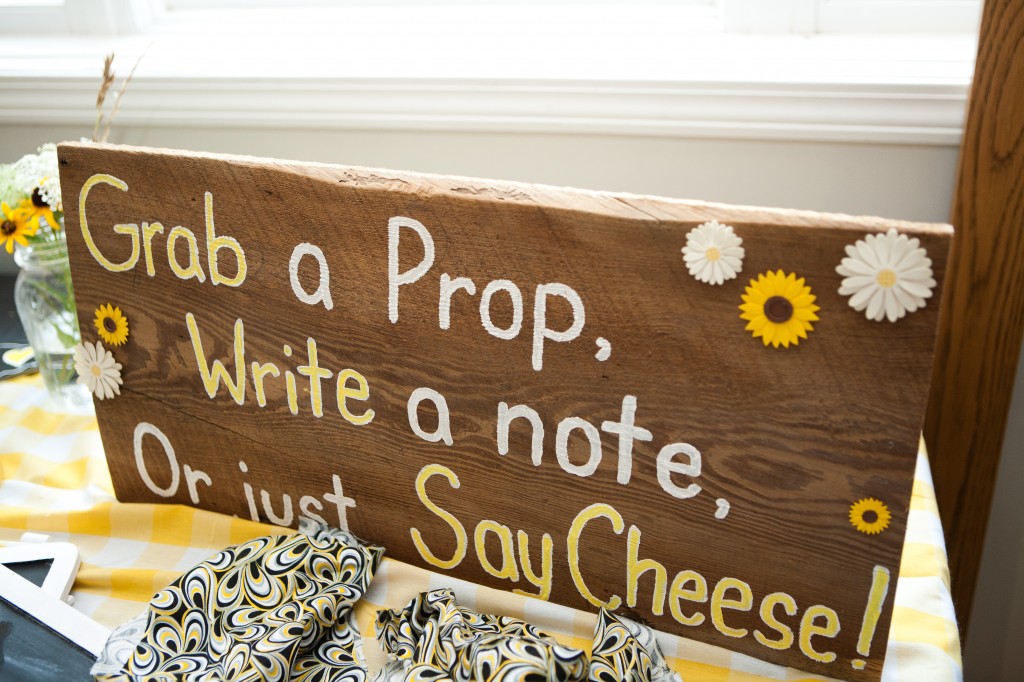 Grab a Prop,
Write a note,
Or just Say Cheese!